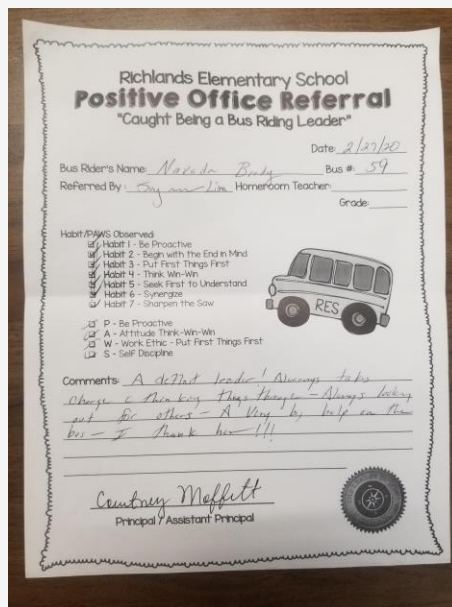 Richlands Elementary School
Positive Office Referral
"Caught Being a Bus Riding Leader"
Date: 2/27/20
Bus Rider's Name: Navada Brady Bus #: 59
Referred By: Homeroom Teacher:
Grade:
Habit/PAWS Observed:
Habit 1 - Be Proactive
Habit 2 - Begin with the End in Mind
Habit 3 - Put First Things First
Habit 4 - Think Win-Win
Habit 5 - Seek First to Understand
Habit 6 - Synergize
Habit 7 - Sharpen the Saw
P - Be Proactive
A - Attitude Think-Win-Win
W - Work Ethic - Put First Things First
S - Self Discipline
RES
Comments: A leader! Always takes
charge things - Always looking
out for others - A very big help on the
bus - I thank her!!!
Courtney Moffitt
Principal / Assistant Principal